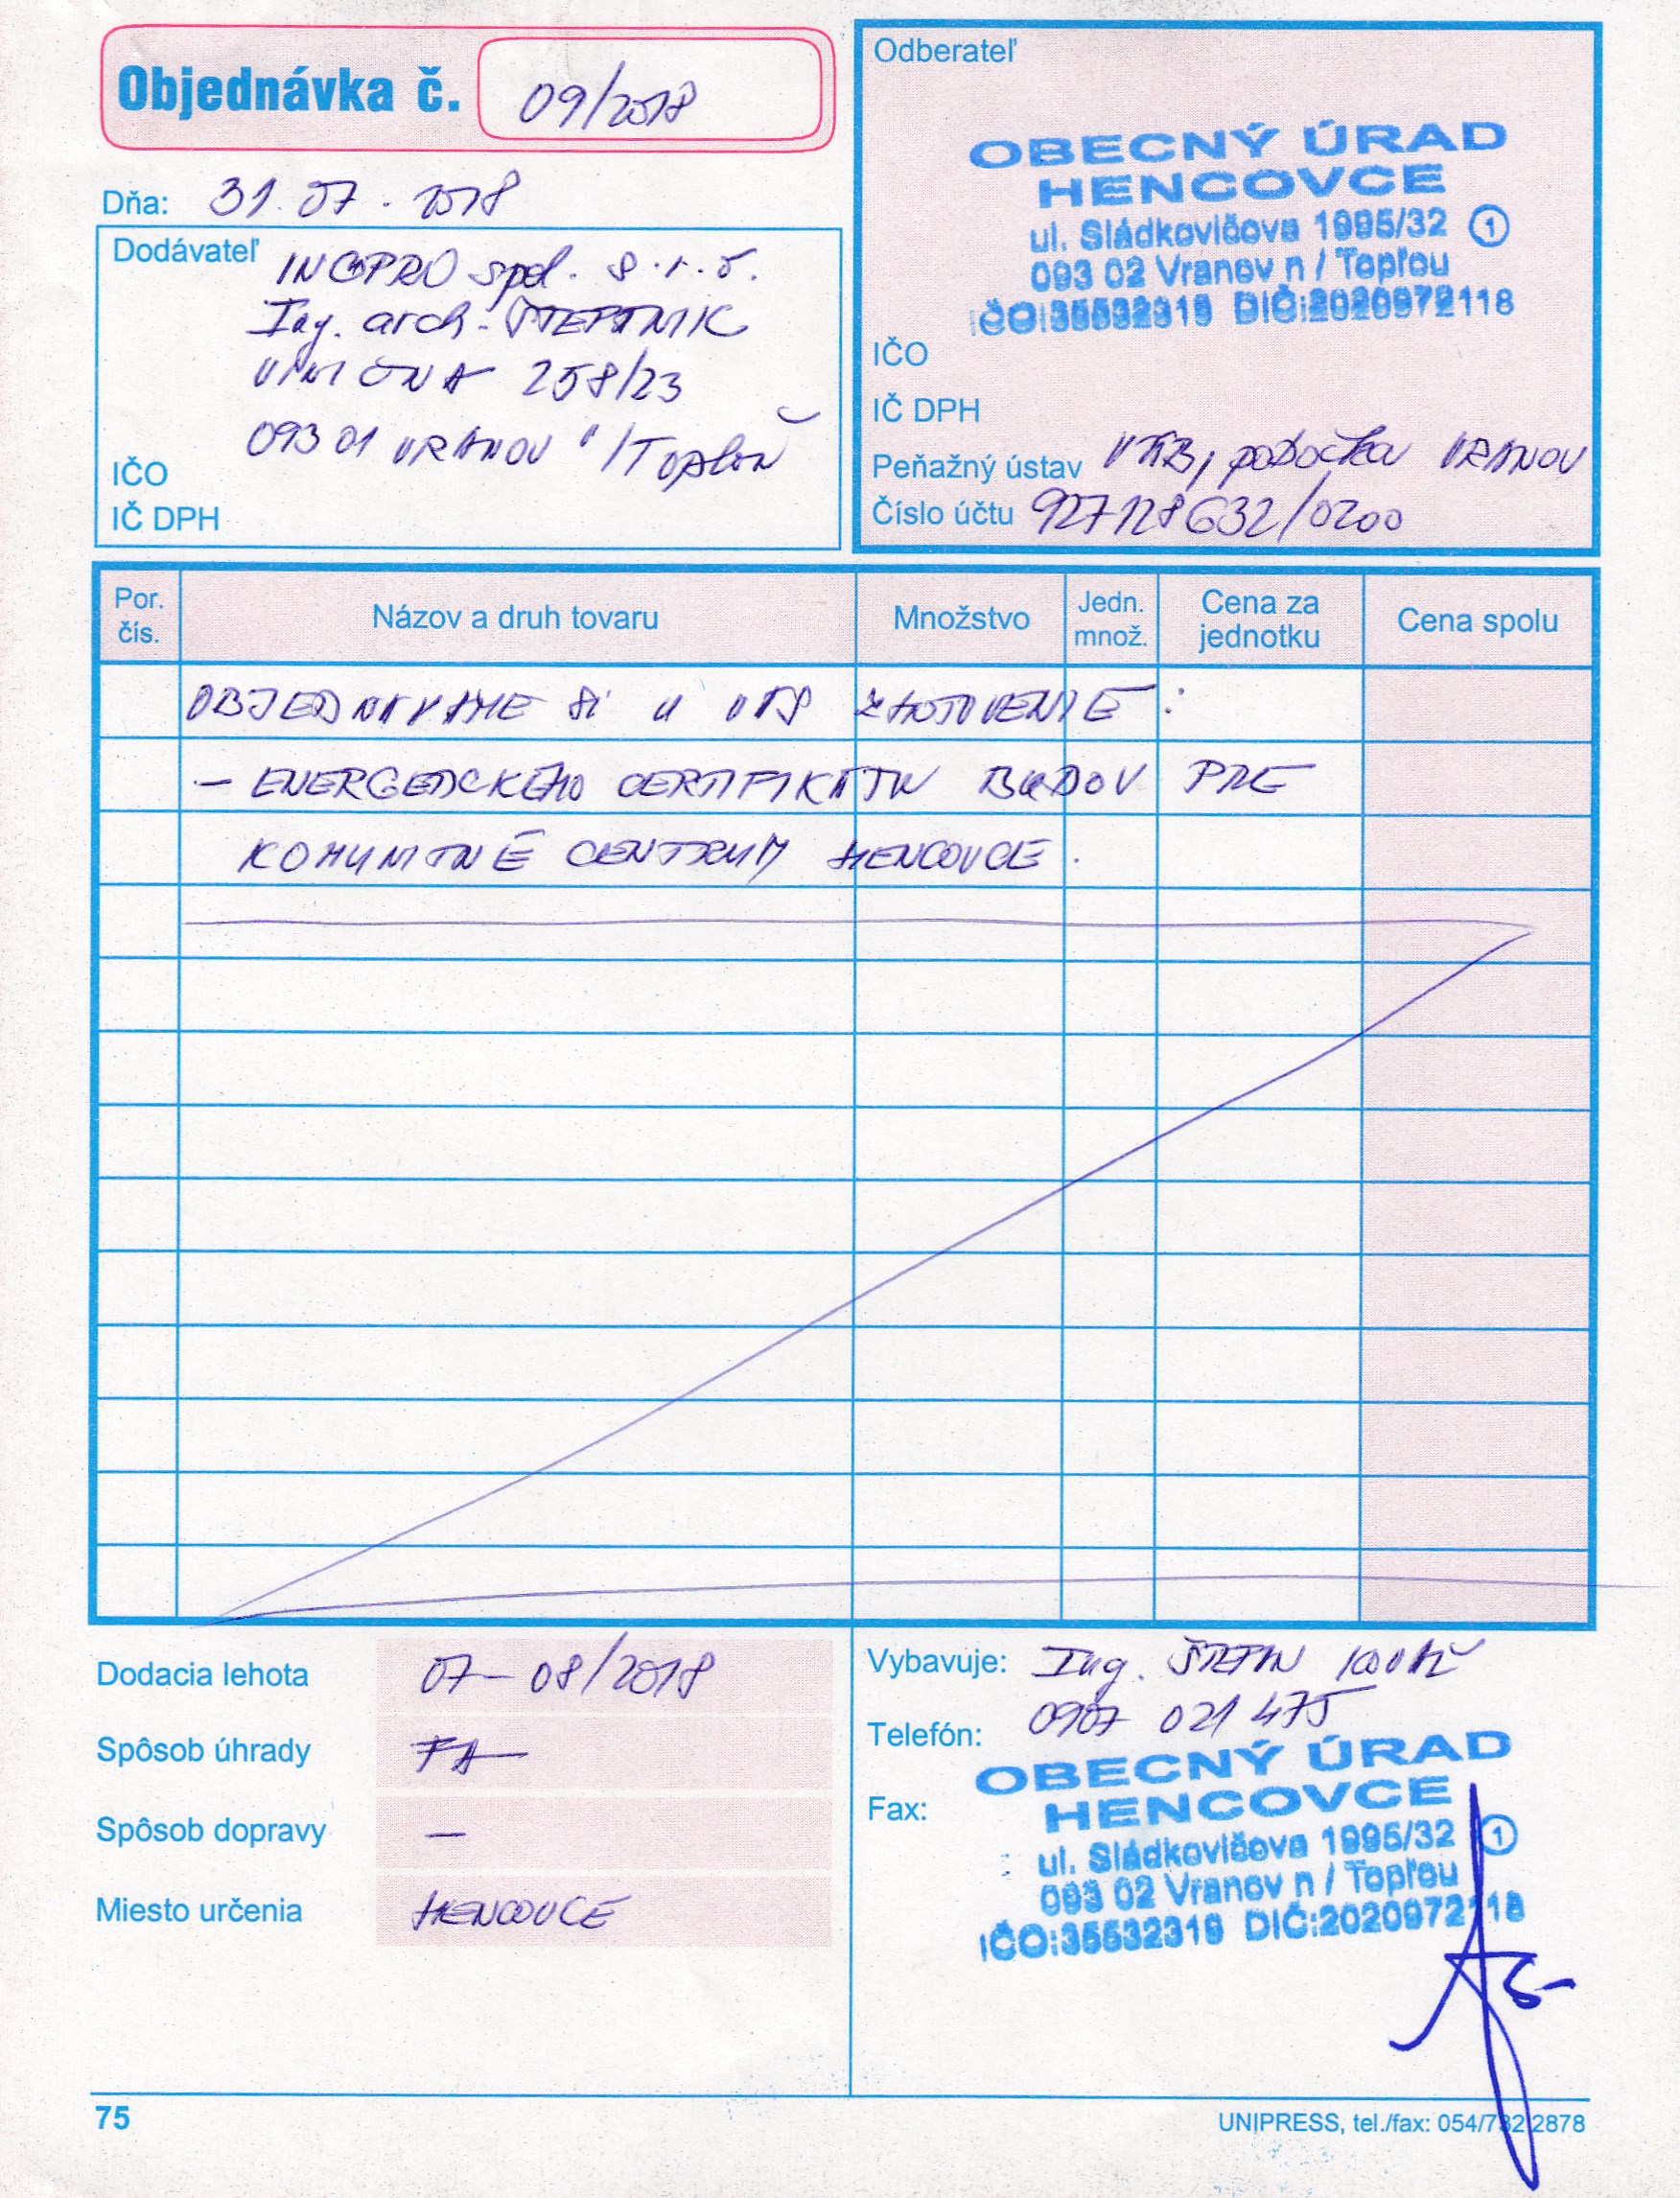 Objednávka č. 09/2018
Dňa: 31.07.2018
Dodávateľ INGPRO spol. s.r.o.
Ing. arch.
VINIČNÁ 258/23
093 01 VRANOV n/Topľou
IČO
IČ DPH
Odberateľ
OBECNÝ ÚRAD
HENCOVCE
ul. Sládkovičova 1995/32 1
093 02 Vranov n / Topľou
IČO:35532319 DIČ:2020972118
IČO
IČ DPH
Peňažný ústav VÚB, pobočka VRANOV
Číslo účtu 927128632/0200
Por. čís.
Názov a druh tovaru
Množstvo
Jedn. množ.
Cena za jednotku
Cena spolu
OBJEDNÁVAME SI U VÁS ZHOTOVENIE :
- ENERGETICKÉHO CERTIFIKÁTU BUDOV PRE
KOMUNITNÉ CENTRUM HENCOVCE .
Dodacia lehota 07-08/2018
Spôsob úhrady FA
Spôsob dopravy —
Miesto určenia HENCOVCE
Vybavuje: Ing. ŠTEFAN KOVÁČ
Telefón: 0907 021 475
Fax:
OBECNÝ ÚRAD
HENCOVCE
ul. Sládkovičova 1995/32 1
093 02 Vranov n / Topľou
IČO:35532319 DIČ:2020972118
75
UNIPRESS, tel./fax: 054/732 2878